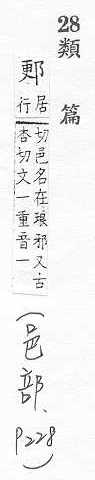 28類篇
郠
居行
切邑名在琅邪又古
杏切文一重音一
(邑部、P228)